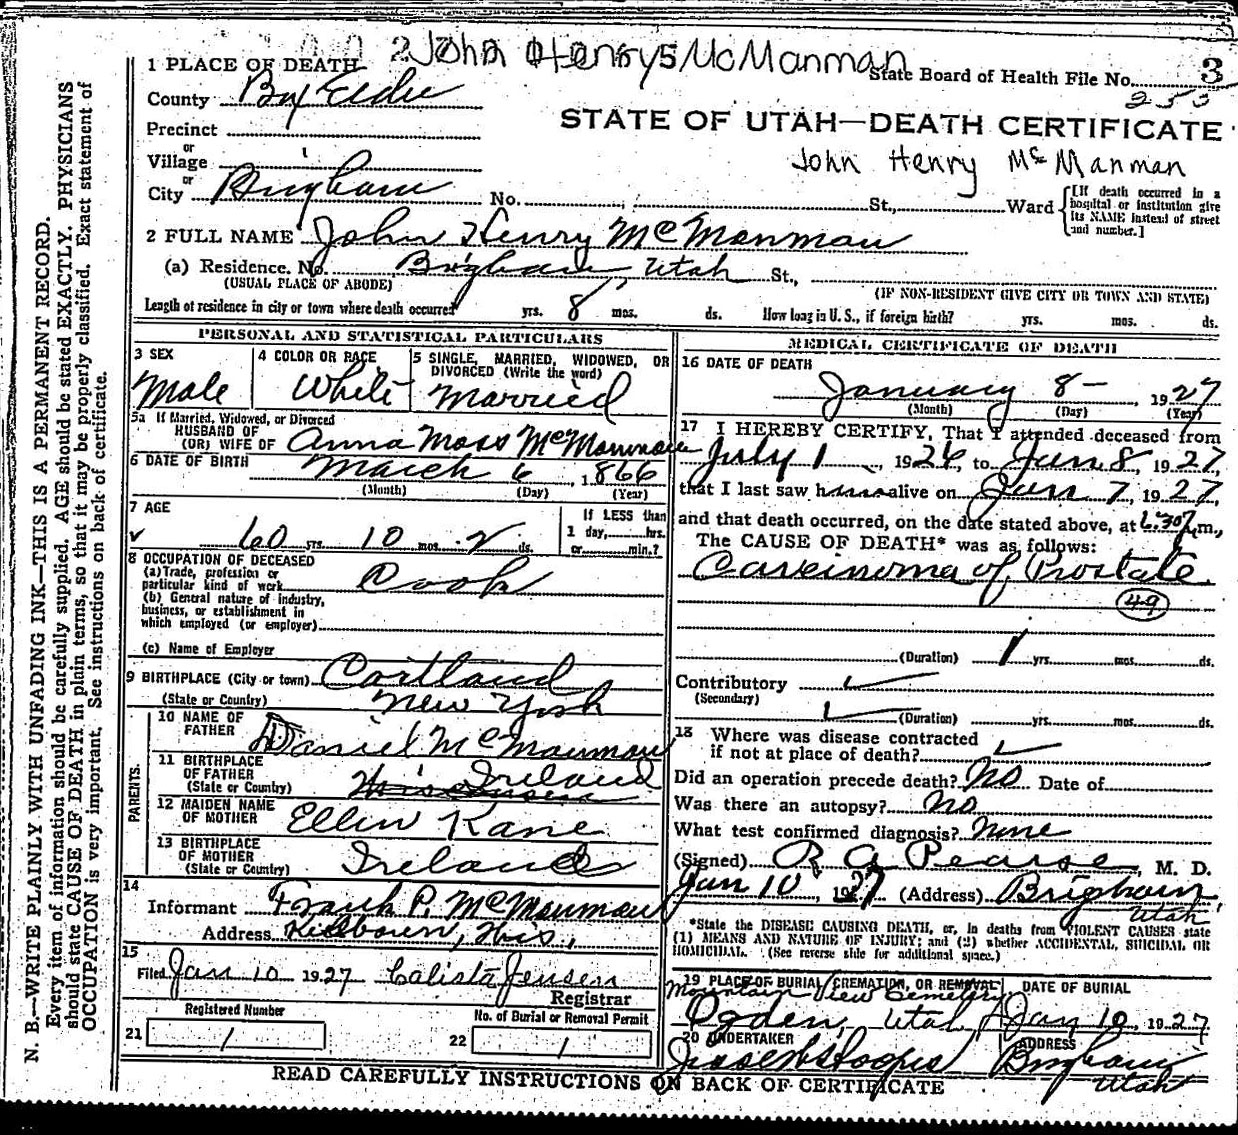 John Henry McManman
1 PLACE OF DEATH
State Board of Health File No. 3
County Box Elder
STATE OF UTAH—DEATH CERTIFICATE
Precinct
or
Village
John Henry Mc Manman
or
City Brigham No. St., Ward
[If death occurred in a hospital or institution give its NAME instead of street and number.]
2 FULL NAME John Henry McManman
(a) Residence. No. Brigham, Utah St.,
(USUAL PLACE OF ABODE) (IF NON-RESIDENT GIVE CITY OR TOWN AND STATE)
Length of residence in city or town where death occurred yrs. 8 mos. ds. How long in U. S., if foreign birth? yrs. mos. ds.
PERSONAL AND STATISTICAL PARTICULARS
3 SEX
Male
4 COLOR OR RACE
White
5 SINGLE, MARRIED, WIDOWED, OR DIVORCED (Write the word)
Married
5a If Married, Widowed, or Divorced
HUSBAND OF
(OR) WIFE OF Anna Moss McManman
6 DATE OF BIRTH March 6, 1866
(Month) (Day) (Year)
7 AGE
60 yrs. 10 mos. 2 ds.
If LESS than
1 day, hrs.
or min.?
8 OCCUPATION OF DECEASED
(a) Trade, profession or
particular kind of work Cook
(b) General nature of industry,
business, or establishment in
which employed (or employer)
(c) Name of Employer
9 BIRTHPLACE (City or town) Cortland
(State or Country) New York
PARENTS.
10 NAME OF
FATHER Daniel McManman
11 BIRTHPLACE
OF FATHER Ireland
(State or Country)
12 MAIDEN NAME
OF MOTHER Ellen Kane
13 BIRTHPLACE
OF MOTHER
(State or Country) Ireland
14
Informant Frank P. McManman
Address Kilbourn, Wis.,
15
Filed Jan 10 1927 Calista Jensen
Registrar
Registered Number
21 1
No. of Burial or Removal Permit
22 1
MEDICAL CERTIFICATE OF DEATH
16 DATE OF DEATH
January 8- 1927
(Month) (Day) (Year)
17 I HEREBY CERTIFY, That I attended deceased from
July 1, 1926, to Jan. 8, 1927,
that I last saw him alive on Jan 7, 1927,
and that death occurred, on the date stated above, at 6:30 m.,
The CAUSE OF DEATH* was as follows:
Carcinoma of Prostate
49
(Duration) 1 yrs. mos. ds.
Contributory
(Secondary)
(Duration) yrs. mos. ds.
18 Where was disease contracted
if not at place of death?
Did an operation precede death? No Date of
Was there an autopsy? No
What test confirmed diagnosis? None
(Signed) R A Pearse, M. D.
Jan 10, 1927 (Address) Brigham, Utah
*State the DISEASE CAUSING DEATH, or, in deaths from VIOLENT CAUSES state
(1) MEANS AND NATURE OF INJURY; and (2) whether ACCIDENTAL, SUICIDAL OR
HOMICIDAL. (See reverse side for additional space.)
19 PLACE OF BURIAL, CREMATION, OR REMOVAL
Mountain View Cemetery
Ogden, Utah
DATE OF BURIAL
Jan 10, 1927
20 UNDERTAKER
ADDRESS
Brigham
Utah
READ CAREFULLY INSTRUCTIONS ON BACK OF CERTIFICATE
N. B.—WRITE PLAINLY WITH UNFADING INK—THIS IS A PERMANENT RECORD.
Every item of information should be carefully supplied. AGE should be stated EXACTLY. PHYSICIANS
should state CAUSE OF DEATH in plain terms, so that it may be properly classified. Exact statement of
OCCUPATION is very important. See instructions on back of certificate.